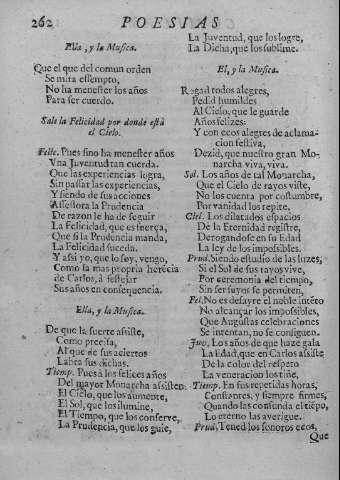 262 POESIAS
Ella, y la Musica.
Que el que del comun orden
Se mira essempto,
No ha menester los años
Para ser cuerdo.
Sale la Felicidad por donde està
el Cielo.
Felic. Pues sino ha menester años
Vna Juventud tan cuerda.
Que las experiencias logra,
Sin passar las experiencias,
Y siendo de sus acciones
Assessora la Prudencia
De razon le ha de seguir
La Felicidad, que es fuerça,
Que si la Prudencia manda,
La Felicidad suceda.
Y assi yo, que lo soy, vengo,
Como la mas propria herecia
de Carlos, à festejar
Sus años en consequencia.
Ella, y la Musica.
De que la suerte assiste,
Como precisa,
Al que de sus aciertos
Labra sus dichas.
Tiemp. Pues à los felices años
Del mayor Monarcha assisten
El Cielo, que los aumente,
El Sol, que los ilumine,
El Tiempo, que los conserve,
La Prudencia, que los guie,
La Juventud, que los logre,
La Dicha, que los sublime.
El, y la Musica.
Rogad todos alegres,
Pedid humildes
Al Cielo, que le guarde
Años felizes:
Y con ecos alegres de aclama-
cion festiva,
Dezid, que nuestro gran Mo-
narcha viva, viva.
Sol. Los años de tal Monarcha,
Que el Cielo de rayos viste,
No los cuenta por costumbre,
Por vanidad los repite.
Ciel. Los dilatados espacios
De la Eternidad registre,
Derogandose en su Edad
La ley de los impossibles.
Prud. Siendo estudio de las luzes,
Si el Sol de sus rayos vive,
Por ceremonia del tiempo,
Sin ser suyos se permiten,
Fel. No es desayre el noble intēto
No alcançar los impossibles,
Que Augustas celebraciones
Se intentan, no se consiguen.
Juv. Los años de que haze gala
La Edad, que en Carlos assiste
De la color del respeto
La veneracion los tiñe,
Tiemp. En sus repetidas horas,
Constantes, y siempre firmes,
Quando las confunda el tiēpo,
Lo eterno las averigue.
Prud. Tened los sonoros ecos,
Que